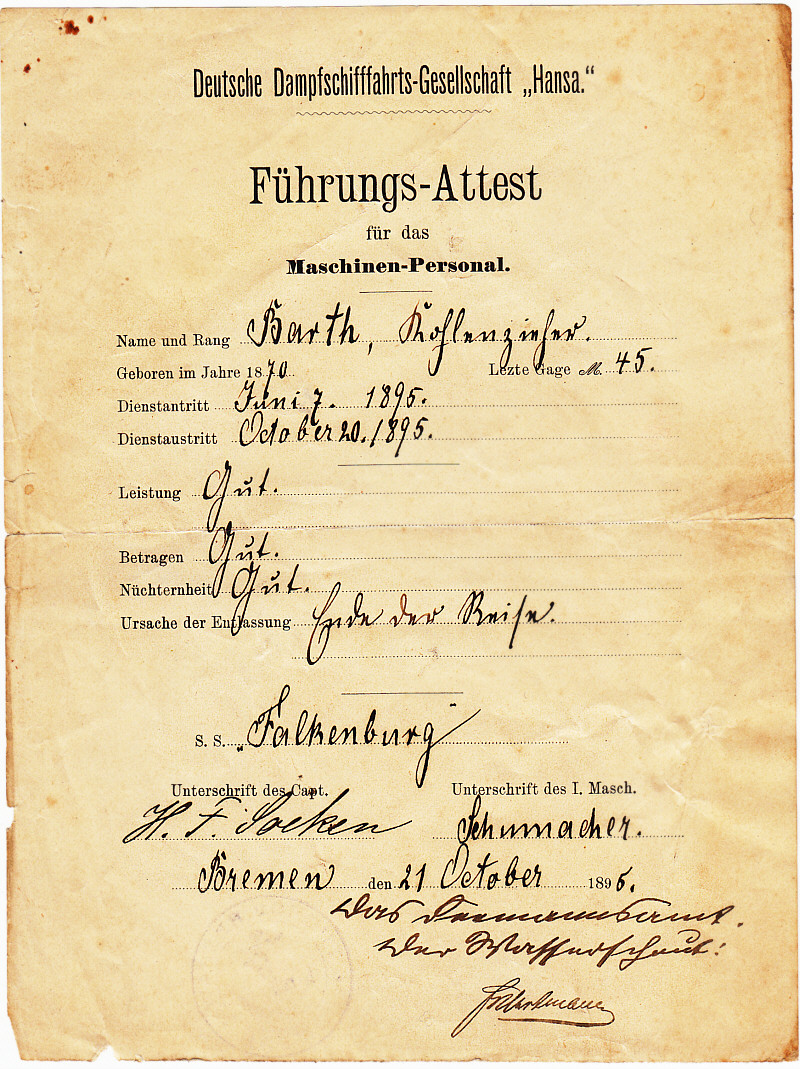 Deutsche Dampfschifffahrts-Gesellschaft „Hansa.“
Führungs-Attest
für das
Maschinen-Personal.
Name und Rang Barth, Kohlenzieher.
Geboren im Jahre 1870 Lezte Gage M. 45.
Dienstantritt Juni 7. 1895.
Dienstaustritt October 20. 1895.
Leistung Gut.
Betragen Gut.
Nüchternheit Gut.
Ursache der Entlassung Ende der Reise.
S. S. „Falkenburg“
Unterschrift des Capt. Unterschrift des I. Masch.
H. F. Schumacher.
Bremen den 21 October 1895.
Das Seemannsamt.
Der Wasserschout: